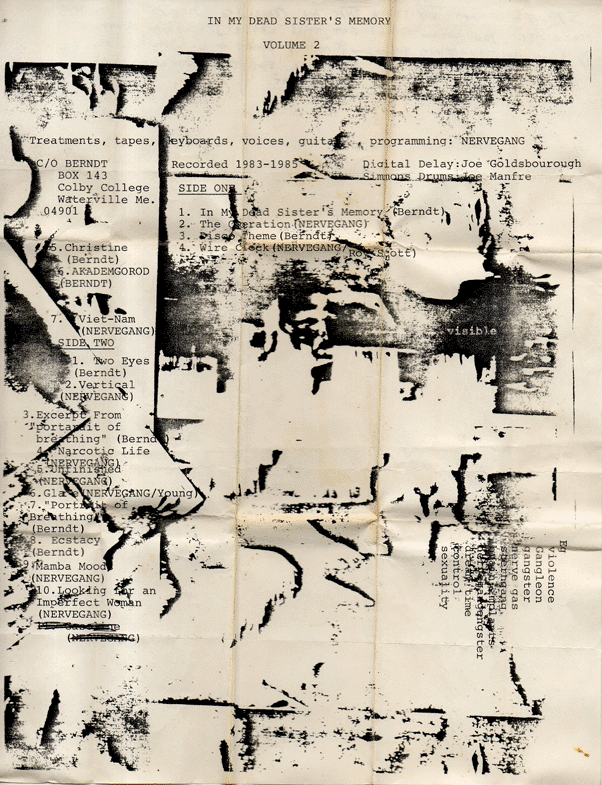 IN MY DEAD SISTER'S MEMORY
VOLUME 2
Treatments, tapes, eyboards, voices, guita programming: NERVEGANG
C/O BERNDT
BOX 143
Colby College
Waterville Me.
04901
Recorded 1983-1985
Digital Delay:Joe Goldsbourough
Simmons Drums:Joe Manfre
SIDE ONE
1. In My Dead Sister's Memory (Berndt)
2. The Operation(NERVEGANG)
3. Disco Theme(Berndt)
4. Wire Clock(NERVEGANG/
Roy Scott)
5.Christine
(Berndt)
6.AKADEMGOROD
(BERNDT)
7. Viet-Nam
(NERVEGANG)
visible
SIDE TWO
1. Two Eyes
(Berndt)
2.Vertical
(NERVEGANG)
3.Excerpt From
"portarait of
breathing" (Bernd
4. Narcotic Life
(NERVEGANG)
5.Unfinished
(NERVEGANG)
6.Glare(NERVEGANG/Young)
7."Portrait of
Breathing"
(Berndt)
8. Ecstacy
(Berndt)
9.Mamba Mood
(NERVEGANG)
10.Looking for an
Imperfect Woman
(NERVEGANG)
(NERVEGANG)
violence
Gangleon
gangster
nerve gas
time
control
sexuality